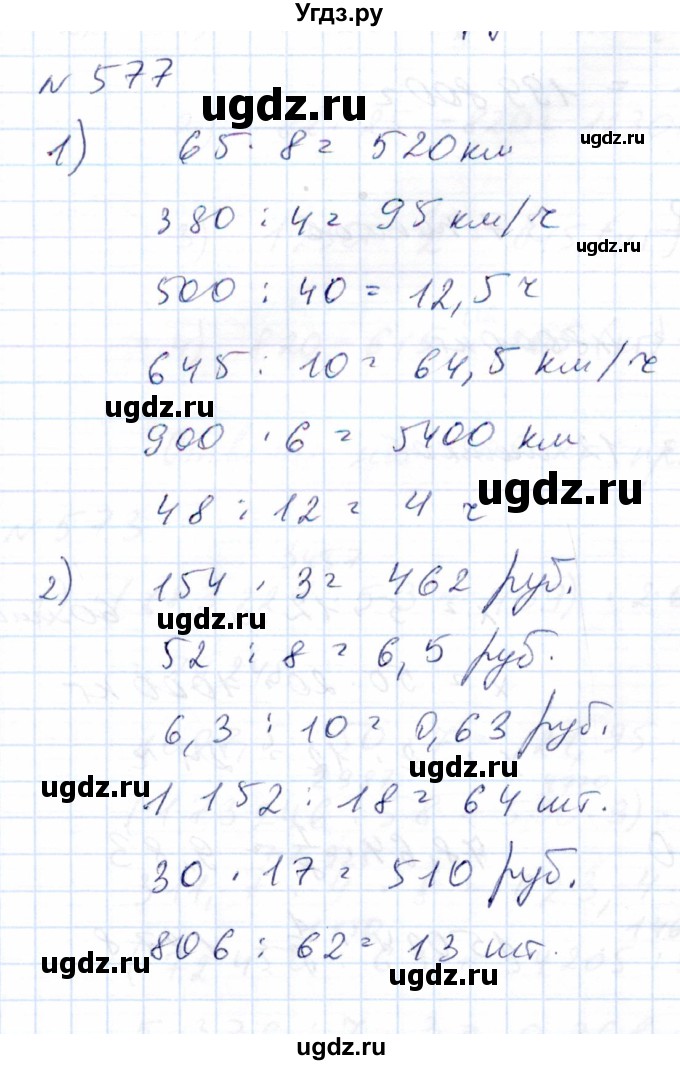 Угдз.ру
№ 577
ugdz.ru
ugdz.ru
1) 65 · 8 = 520 км
380 : 4 = 95 км/ч
ugdz.ru
500 : 40 = 12,5 ч
645 : 10 = 64,5 км/ч
ugdz.ru
900 · 6 = 5400 км
ugdz.ru
48 : 12 = 4 ч
2) 154 · 3 = 462 руб.
ugdz.ru
52 : 8 = 6,5 руб.
6,3 : 10 = 0,63 руб.
ugdz.ru
ugdz.ru
1 152 : 18 = 64 шт.
30 · 17 = 510 руб.
806 : 62 = 13 шт.
ugdz.ru
ugdz.ru
ugdz.ru